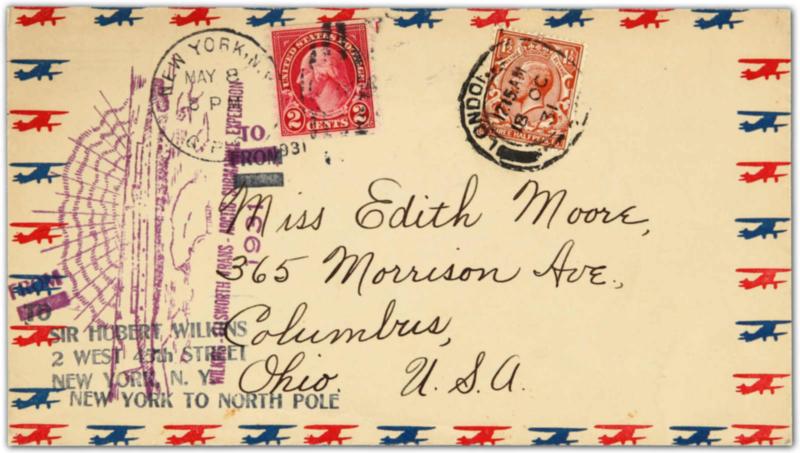 NEW YORK, N.Y.
MAY 8
6 PM
1931
UNITED STATES POSTAGE
2 CENTS 2
LONDON
12 15 AM
OC
31
THREE HALFPENCE
TO
FROM
WILKINS-ELLSWORTH TRANS-ARCTIC SUBMARINE EXPEDITION
1931
Miss Edith Moore,
365 Morrison Ave.,
Columbus,
Ohio. U.S.A.
FROM
TO
SIR HUBERT WILKINS
2 WEST 45th STREET
NEW YORK, N. Y.
NEW YORK TO NORTH POLE